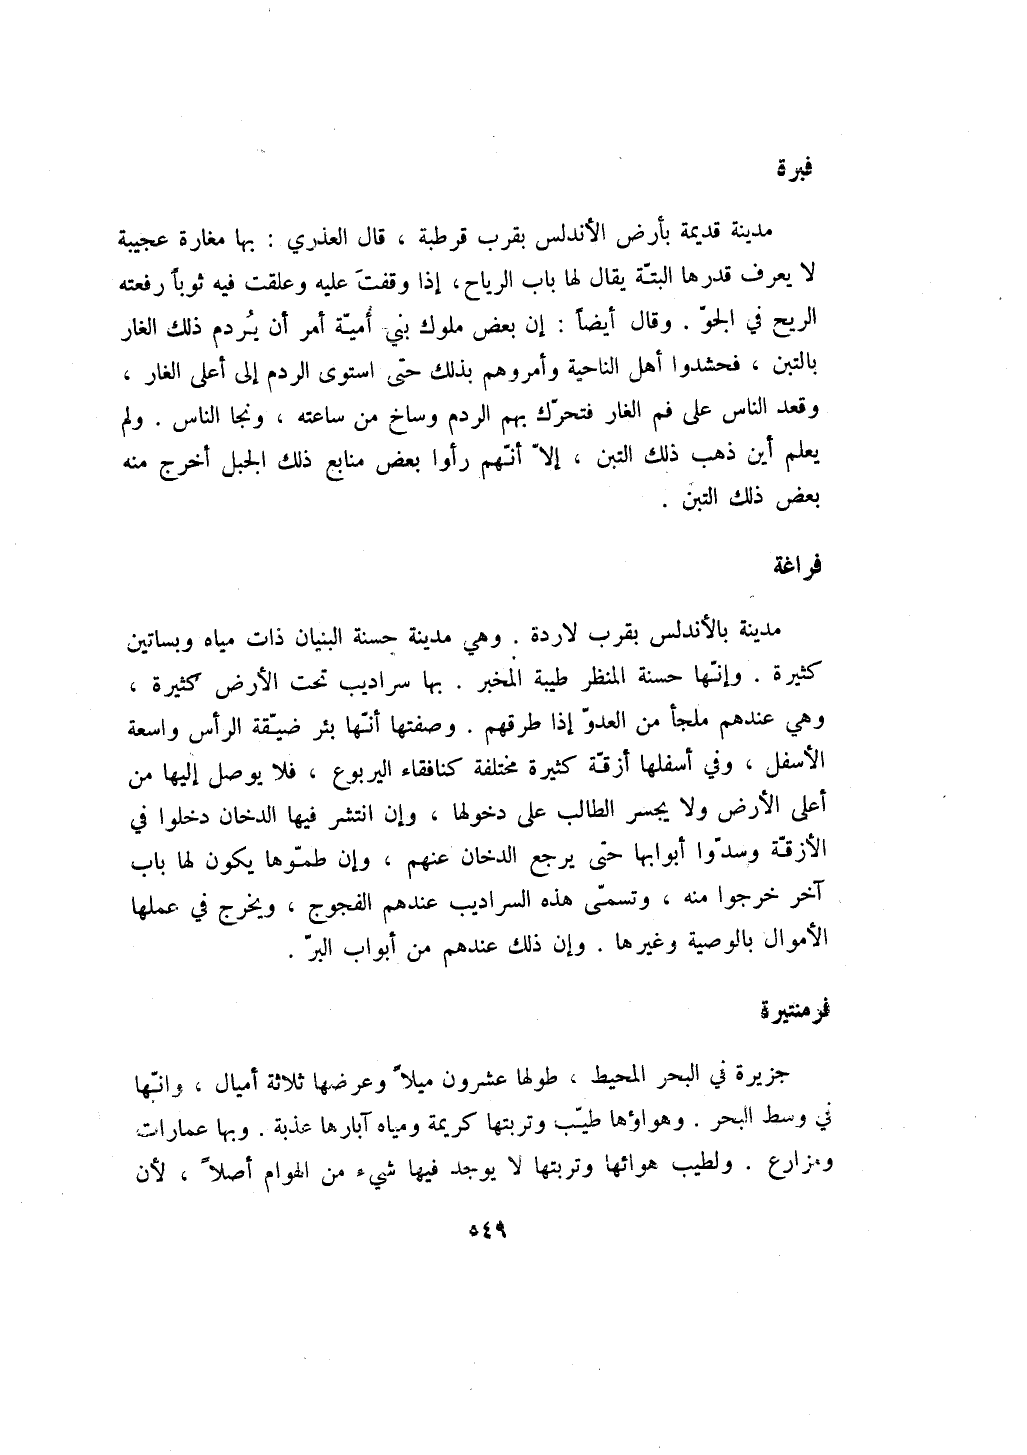 فبرة
مدينة قديمة بأرض الأندلس بقرب قرطبة ، قال العذري : بها مغارة عجيبة
لا يعرف قدرها البتّة يقال لها باب الرياح ، إذا وقفتَ عليه وعلقت فيه ثوباً رفعته
الريح في الجوّ . وقال أيضاً : إن بعض ملوك بني أُميّة أمر أن يُردم ذلك الغار
بالتبن ، فحشدوا أهل الناحية وأمروهم بذلك حتّى استوى الردم إلى أعلى الغار ،
وقعد الناس على فم الغار فتحرّك بهم الردم وساخ من ساعته ، ونجا الناس . ولم
يعلم أين ذهب ذلك التبن ، إلاّ أنّهم رأوا بعض منابع ذلك الجبل أخرج منه
بعض ذلك التبن .
فراغة
مدينة بالأندلس بقرب لاردة . وهي مدينة حسنة البنيان ذات مياه وبساتين
كثيرة . وإنّها حسنة المنظر طيبة المخبر . بها سراديب تحت الأرض كثيرة ،
وهي عندهم ملجأ من العدوّ إذا طرقهم . وصفتها أنّها بئر ضيّقة الرأس واسعة
الأسفل ، وفي أسفلها أزقّة كثيرة مختلفة كنافقاء اليربوع ، فلا يوصل إليها من
أعلى الأرض ولا يجسر الطالب على دخولها ، وإن انتشر فيها الدخان دخلوا في
الأزقّة وسدّوا أبوابها حتّى يرجع الدخان عنهم ، وإن طمّوها يكون لها باب
آخر خرجوا منه ، وتسمّى هذه السراديب عندهم الفجوج ، ويخرج في عملها
الأموال بالوصية وغيرها . وإن ذلك عندهم من أبواب البرّ .
فرمنتيرة
جزيرة في البحر المحيط ، طولها عشرون ميلاً وعرضها ثلاثة أميال ، وانّها
في وسط البحر . وهواؤها طيّب وتربتها كريمة ومياه آبارها عذبة . وبها عمارات
ومزارع . ولطيب هوائها وتربتها لا يوجد فيها شيء من الهوام أصلاً ، لأن
٥٤٩